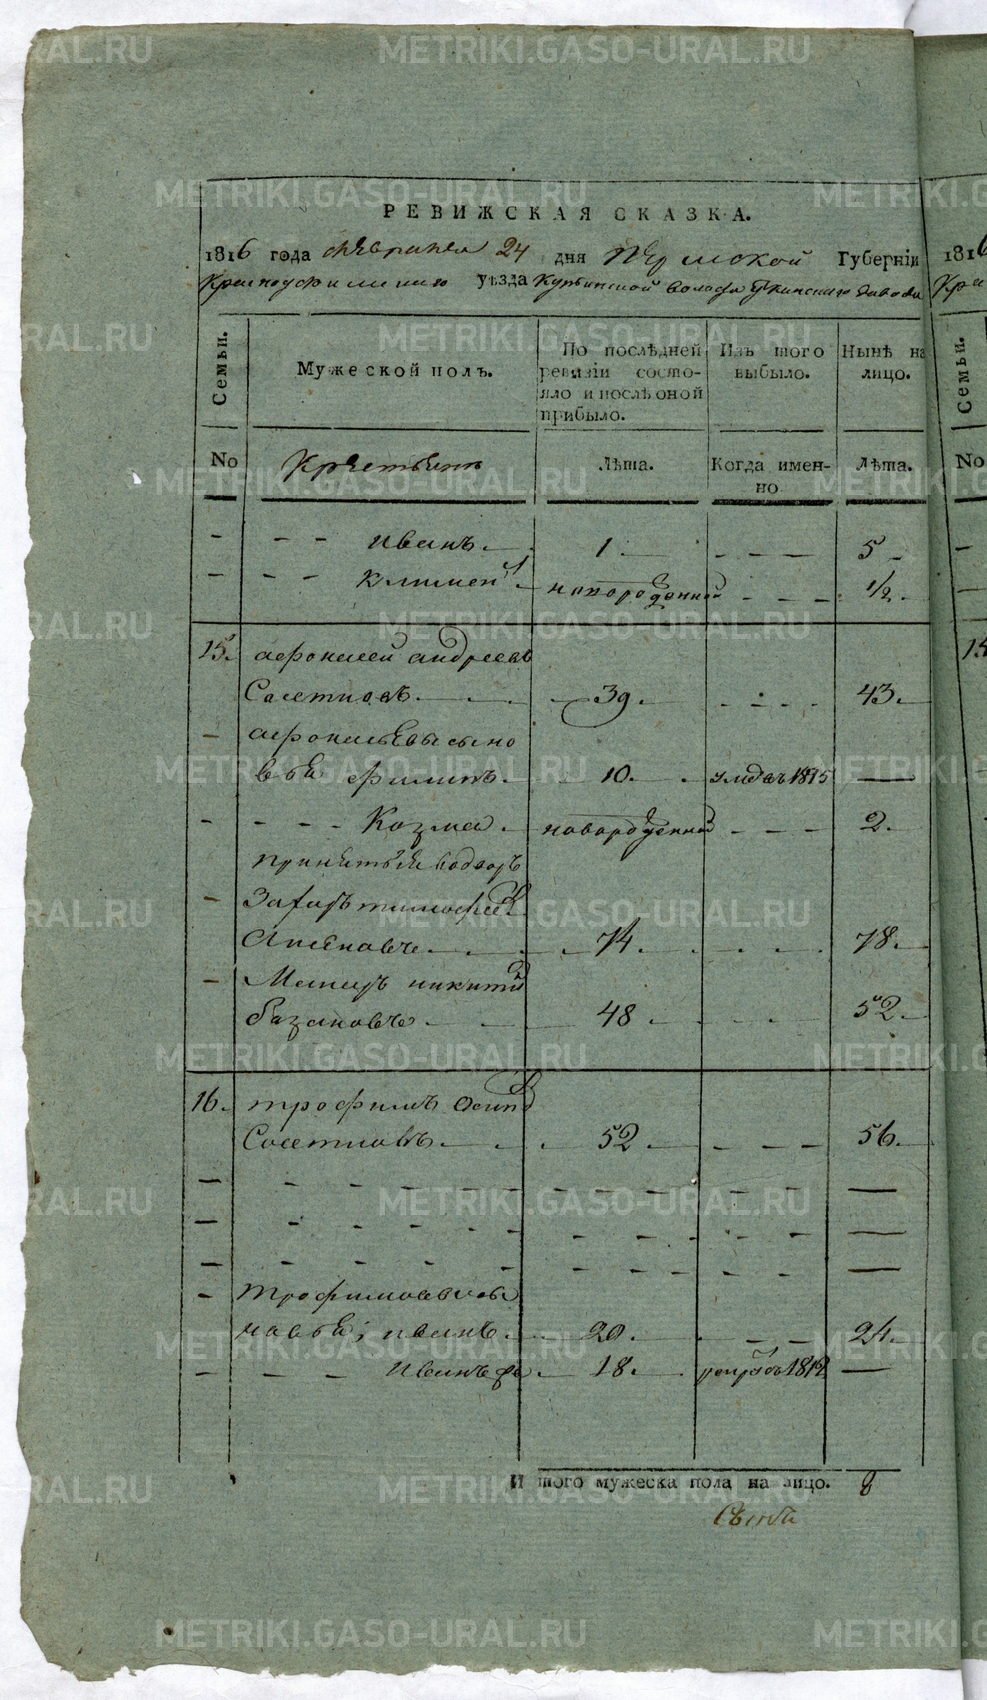 РЕВИЖСКАЯ СКАЗКА.
1816 года февраля 24 дня Пермской Губерніи
Красноуфимскаго уѣзда волости завода
Семьи.
Мужеской полъ.
По послѣдней ревизіи состояло и послѣ оной прибыло.
Изъ того выбыло.
Нынѣ на лицо.
No Крестьянъ Лѣта. Когда именно Лѣта.
- - - иванъ. 1. - - - 5
- - - климент новорожденной - - - 1/2.
15. афонасей андреевъ
Сосетновъ. 39. - - - 43.
- афонасьевы сыно
вья филипъ. 10. умре въ 1815 —
- - - - Козма новорожденной - - - 2.
принятыя во дворъ
- Захаръ тимофеев
74. - - - 78.
- никити
базановъ 48 - - - 52.
16. трофимъ осипов
Сосетновъ. 52 - - - 56.
- трофимовы сы
новья; иванъ. 20. - - - 24.
- - - - иванъ же. 18. рекрутъ 1812 —
И того мужеска пола на лицо. 8
1816
No
15
METRIKI.GASO-URAL.RU